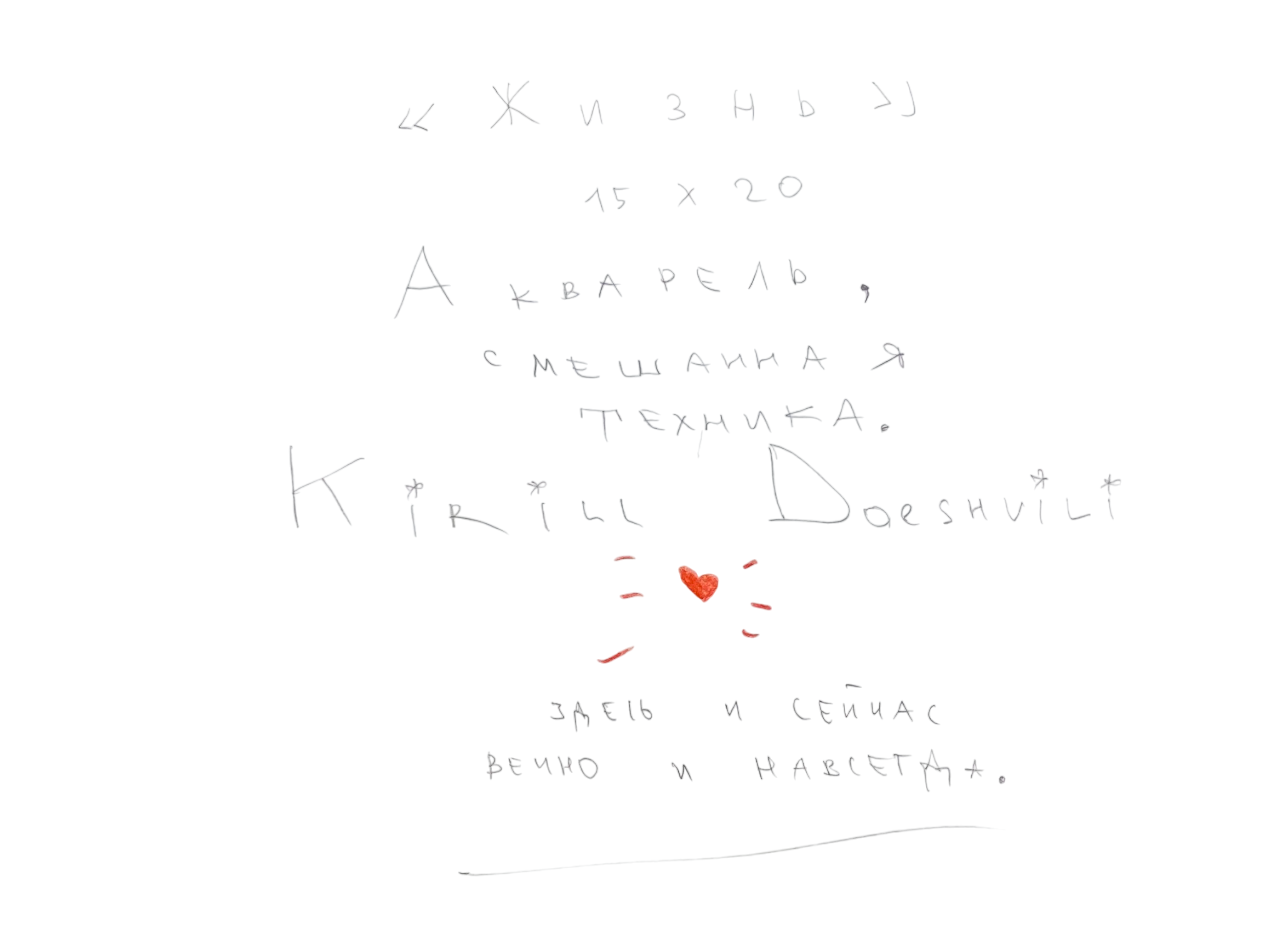 « Жизнь »
15 x 20
Акварель,
смешанная
техника.
Kirill Doeshvili
здесь и сейчас
вечно и навсегда.